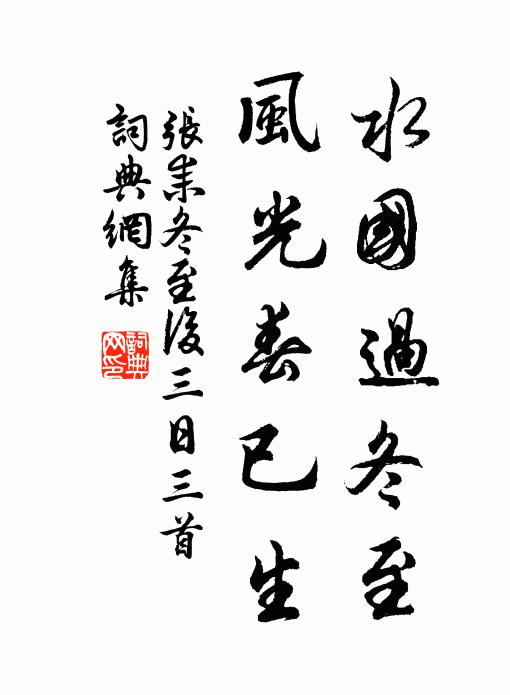 水國過冬至
風光春已生
張耒冬至後三日三首
詞典網集
詞典網印